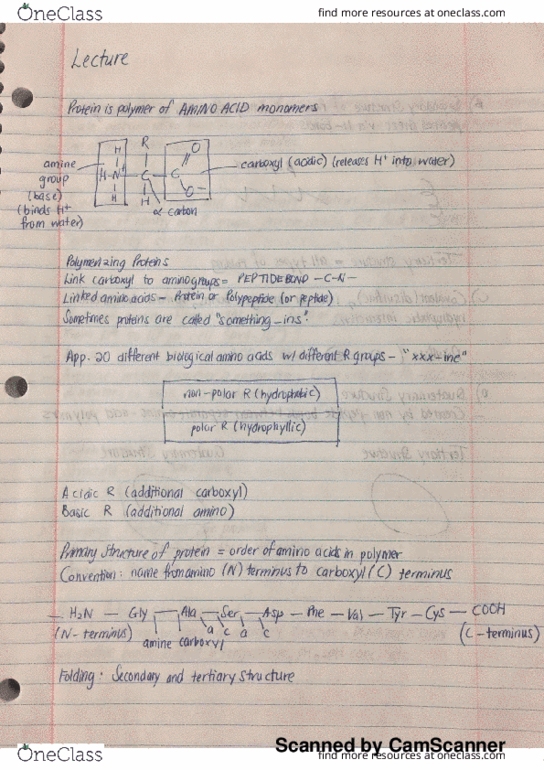 OneClass
find more resources at oneclass.com
Lecture
Protein is polymer of AMINO ACID monomers
R
H
O
amine
H-N+ - C - C
carboxyl (acidic) (releases H+ into water)
group
(base)
H
H
O-
(binds H+
α carbon
from water)
Polymerizing Proteins
Link carboxyl to amino groups = PEPTIDE BOND -C-N-
Linked amino acids - Protein or Polypeptide (or peptide)
Sometimes proteins are called "something-ins".
App. 20 different biological amino acids w/ different R groups - "xxx-ine"
non-polar R (hydrophobic)
polar R (hydrophyllic)
Acidic R (additional carboxyl)
Basic R (additional amino)
Primary Structure of protein = order of amino acids in polymer
Convention: name from amino (N) terminus to carboxyl (C) terminus
H2N - Gly - Ala - Ser - Asp - Phe - Val - Tyr - Cys - COOH
(N-terminus)
a c a c
(C-terminus)
amine carboxyl
Folding: Secondary and tertiary structure
Scanned by CamScanner
OneClass
find more resources at oneclass.com